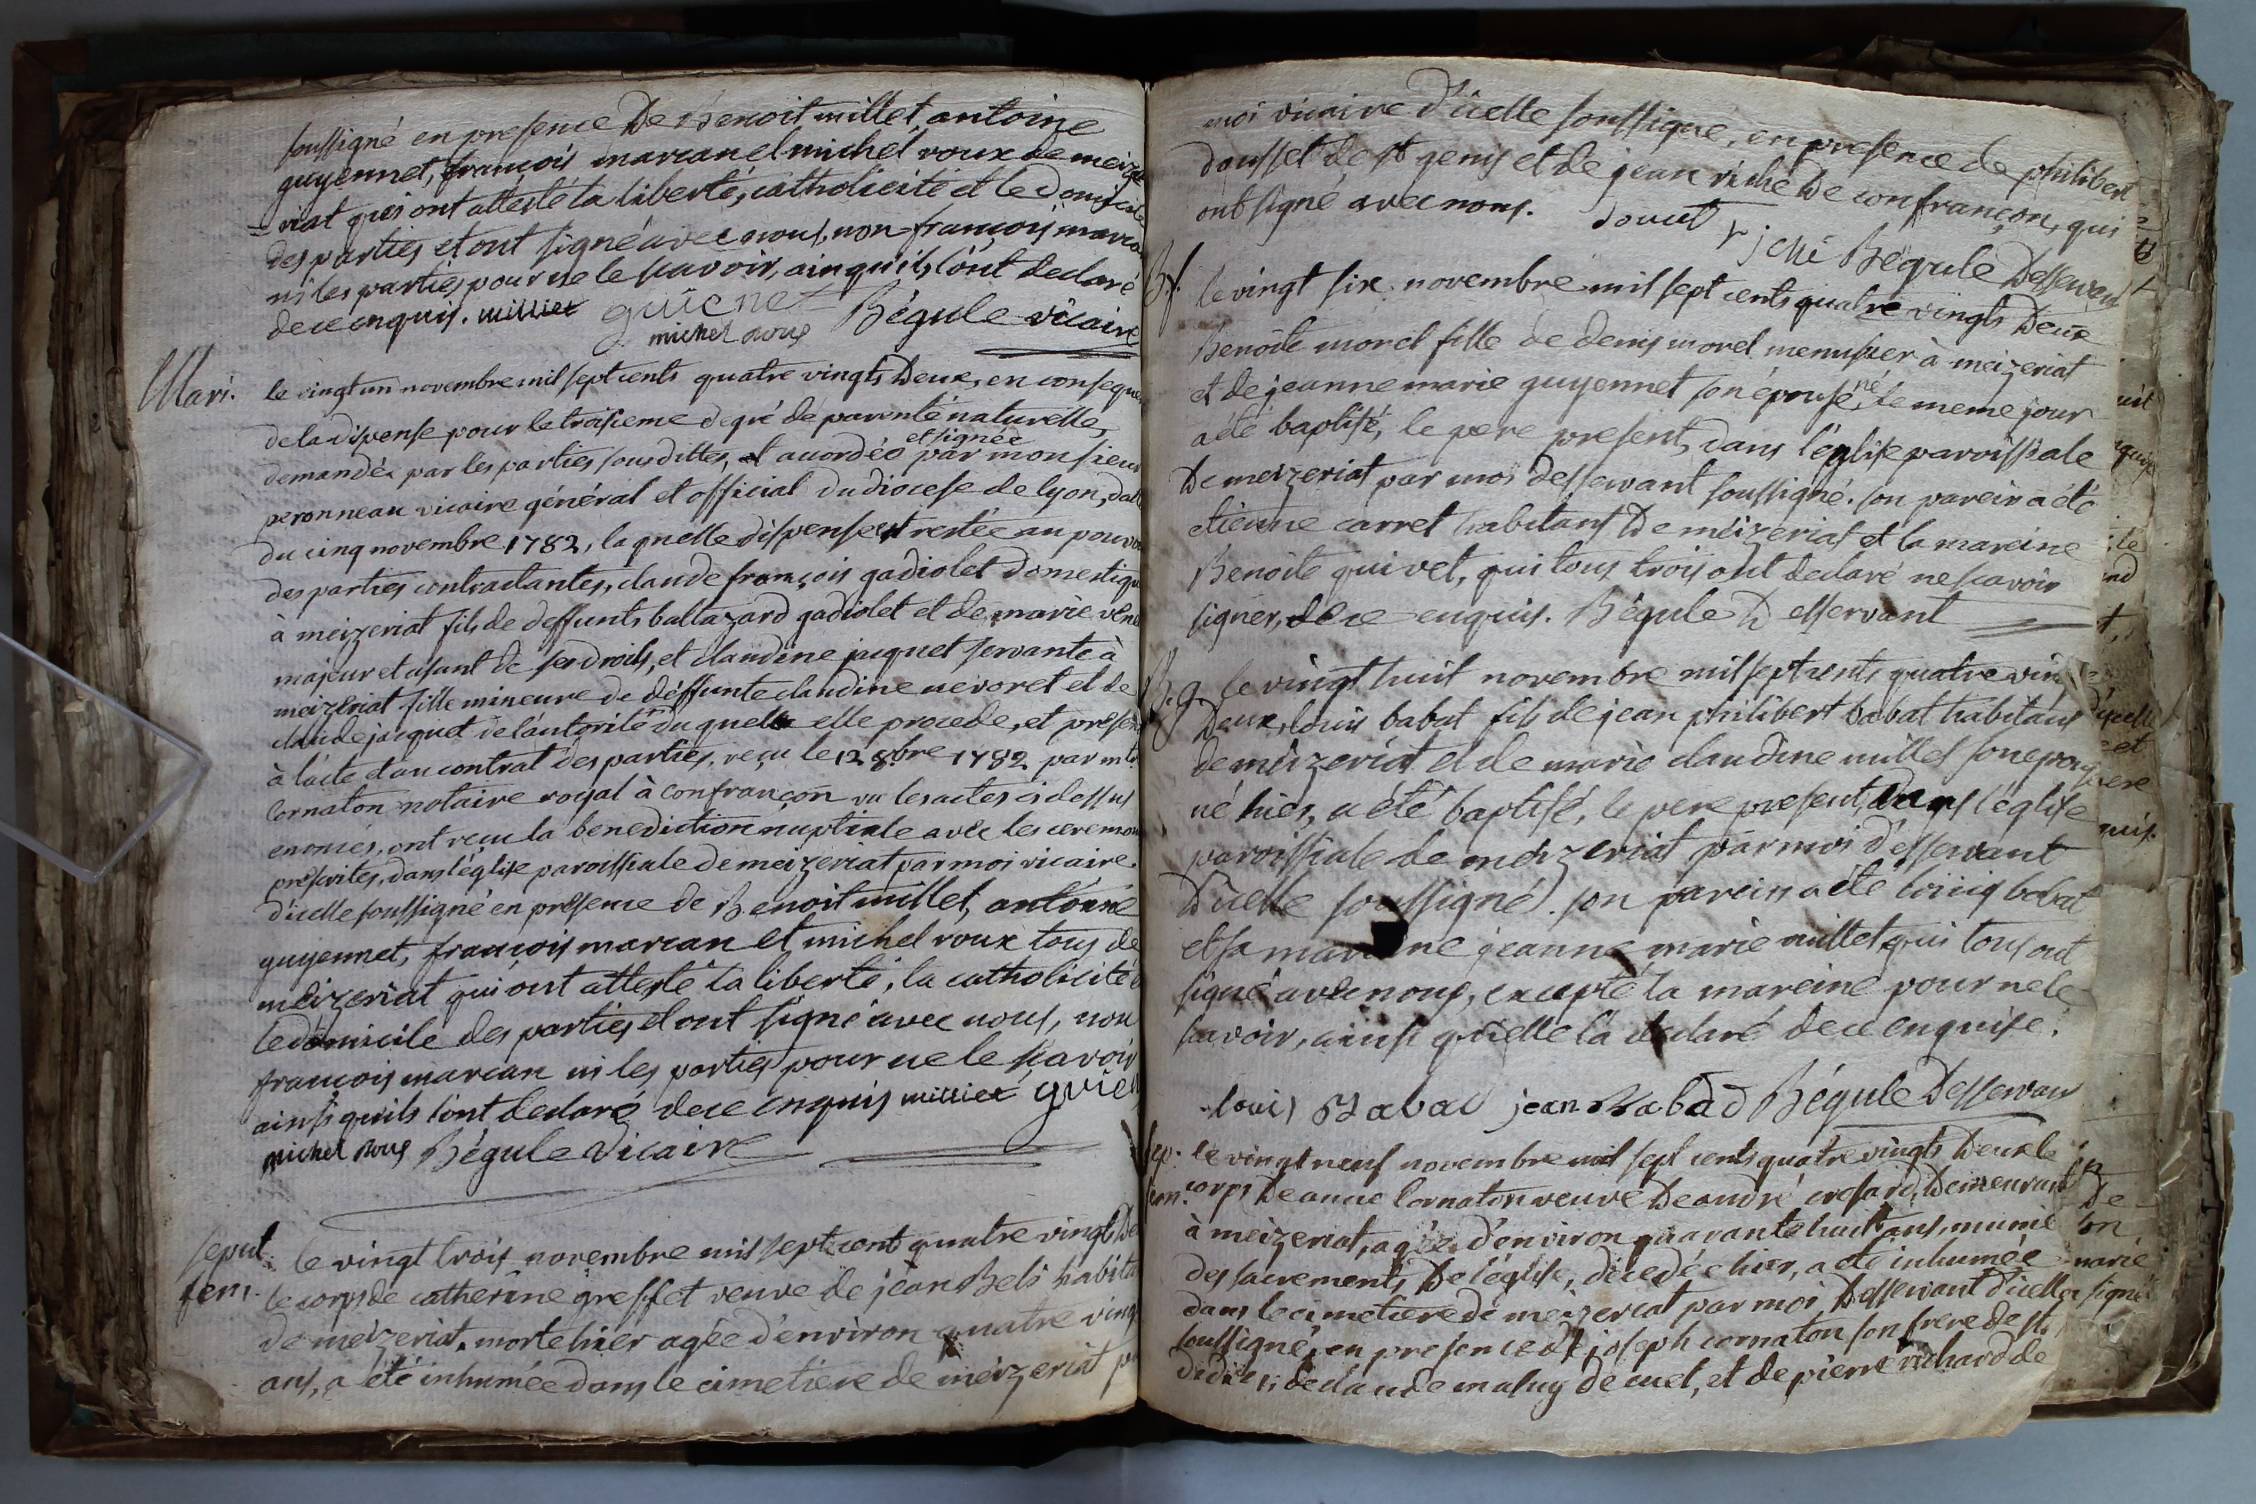 soussigné en presence De Benoit millet, antoine
guyennet, françois marcan et michel roux de meize
=riat qui ont attesté la liberté, catholicité et le domicile
des parties et ont signé avec nous, non françois marca
ni les parties pour ne le scavoir, ainsi quils l'ont declaré
de ce enquis. milliet guienet
michel rous Bégule vicaire
Mari. le vingt un novembre mil sept cents quatre vingts Deux, en conseque
de la dispense pour le troisieme degré de parenté naturelle,
demandée par les parties sousdittes, et acordéé et signée par monsieur
peronneau vicaire général et official du diocese de lyon, datt
du cinq novembre 1782, la quelle dispense est restée au pouvoi
des parties contractantes, claude françois gadiolet domestique
à meizeriat fils de deffunts baltazard gadiolet et de marie vene
majeur et usant de ses droits, et claudine jacquet servante à
meizeriat fille mineure de deffunte claudine nevoret et de
claude jacquet de l'autorité du quel elle procede, et presen
à l'acte et au contrat des parties, reçu le 12 8.bre 1782 par mtr.
Cornaton notaire royal à confrançon vu les actes ci dessus
enoncés, ont recu la benediction nuptiale avec les ceremon
prescrites, dans l'église paroissiale de meizeriat par moi vicaire
d'icelle soussigné en presence de Benoit millet, antoine
guyennet, françois marcan et michel roux tous de
meizeriat qui ont attesté la liberté, la catholicité
le domicile des parties et ont signé avec nous, non
francois marcan ni les parties pour ne le scavoir
ainsi quils l'ont declaré de ce enquis milliet guien
michel rous Bégule Vicaire
sepul. le vingt trois novembre mil sept cent quatre vingt De
fem. le corps de catherine greffet veuve de jean Bels habita
de meizeriat, morte hier agée d'environ quatre vingt
ans, a été inhumée dans le cimetiere de meizeriat p
moi vicaire d'icelle soussigné, en presence de philibert
dousset de st genis et de jean riche De confrançon, qui
ont signé avec nons. Bégule Desservant
B.f. le vingt six novembre mil sept cents quatre vingts Deux
Benoite morel fille de denis morel menusier à meizeriat
et de jeanne marie guyennet son épouse, né le meme jour
a été baptisé, le pere present, dans l'église paroissiale
De meizeriat par moi desservant soussigné. son parein a été
etienne carret habitant De meizeriat et la mareine
Benoite quivet, qui tous trois ont declaré ne scavoir
signer, de ce enquis. Bégule Desservant
B.g. le vingt huit novembre mil sept cents quatre vin
Deux, louis babat fils de jean philibert babat habitant
de meizeriat et de marie claudine millet son epou
né hier, a été baptisé, le pere present, Dans l'église
paroissiale de meizeriat par moi desservant
D'icelle soussigné. son parein a été louis babat
et sa mareine jeanne marie millet qui tous ont
signé avec nous, excepté la mareine pour ne le
scavoir, ainsi qu'elle l'a declaré de ce enquise.
louis Babad jean Babad Bégule Desservan
Sep. le vingt neuf novembre mil sept cents quatre vingts Deux le
fem. corps De anne Cornaton veuve De andré crosard, Demeurant
à meizeriat, agée d'environ quarante huit ans, munie
des sacrements De l'église, decedée hier, a été inhumée
dans le cimetiere de meizeriat par moi, Desservant d'icelle
soussigné, en presence de joseph cornaton son frere de st.
didier, de claude maluy de cuet, et de pierre richard de